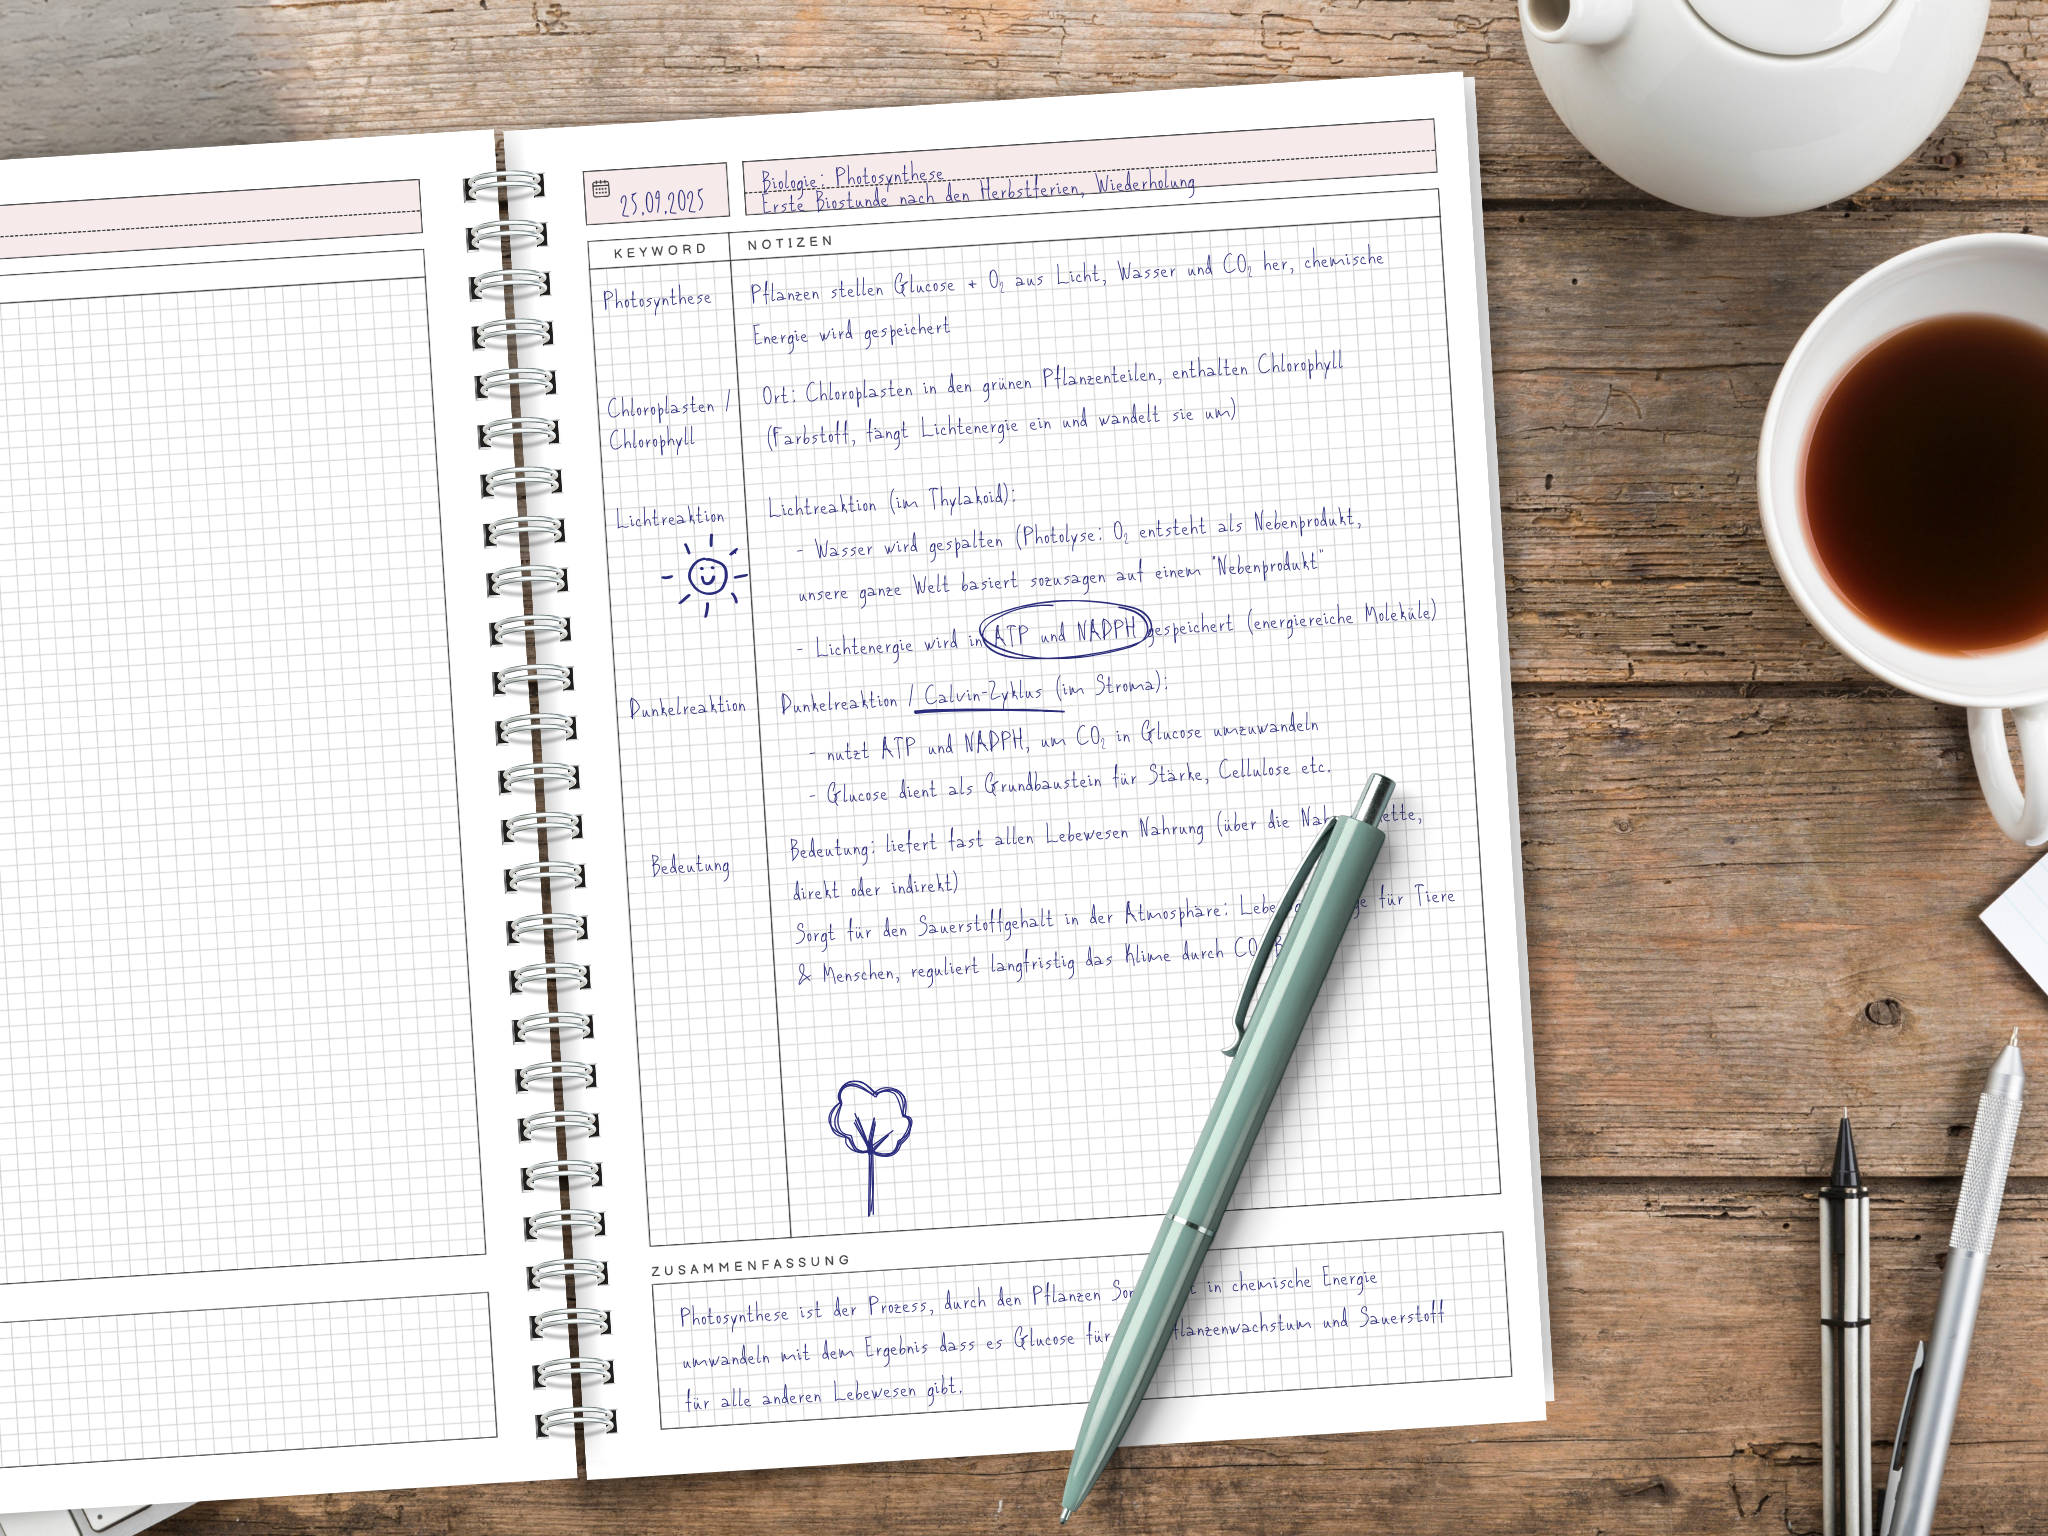 25.09.2025
Biologie: Photosynthese
Erste Biostunde nach den Herbstferien, Wiederholung
KEYWORD
NOTIZEN
Photosynthese
Pflanzen stellen Glucose + O₂ aus Licht, Wasser und CO₂ her, chemische
Energie wird gespeichert
Chloroplasten /
Chlorophyll
Ort: Chloroplasten in den grünen Pflanzenteilen, enthalten Chlorophyll
(Farbstoff, fängt Lichtenergie ein und wandelt sie um)
Lichtreaktion
Lichtreaktion (im Thylakoid):
- Wasser wird gespalten (Photolyse: O₂ entsteht als Nebenprodukt,
unsere ganze Welt basiert sozusagen auf einem "Nebenprodukt"
- Lichtenergie wird in ATP und NADPH gespeichert (energiereiche Moleküle)
Dunkelreaktion
Dunkelreaktion / Calvin-Zyklus (im Stroma):
- nutzt ATP und NADPH, um CO₂ in Glucose umzuwandeln
- Glucose dient als Grundbaustein für Stärke, Cellulose etc.
Bedeutung
Bedeutung: liefert fast allen Lebewesen Nahrung (über die
direkt oder indirekt)
Sorgt für den Sauerstoffgehalt in der Atmosphäre: für Tiere
& Menschen, reguliert langfristig das Klime durch CO
ZUSAMMENFASSUNG
Photosynthese ist der Prozess, durch den Pflanzen in chemische Energie
umwandeln mit dem Ergebnis dass es Glucose für und Sauerstoff
für alle anderen Lebewesen gibt.